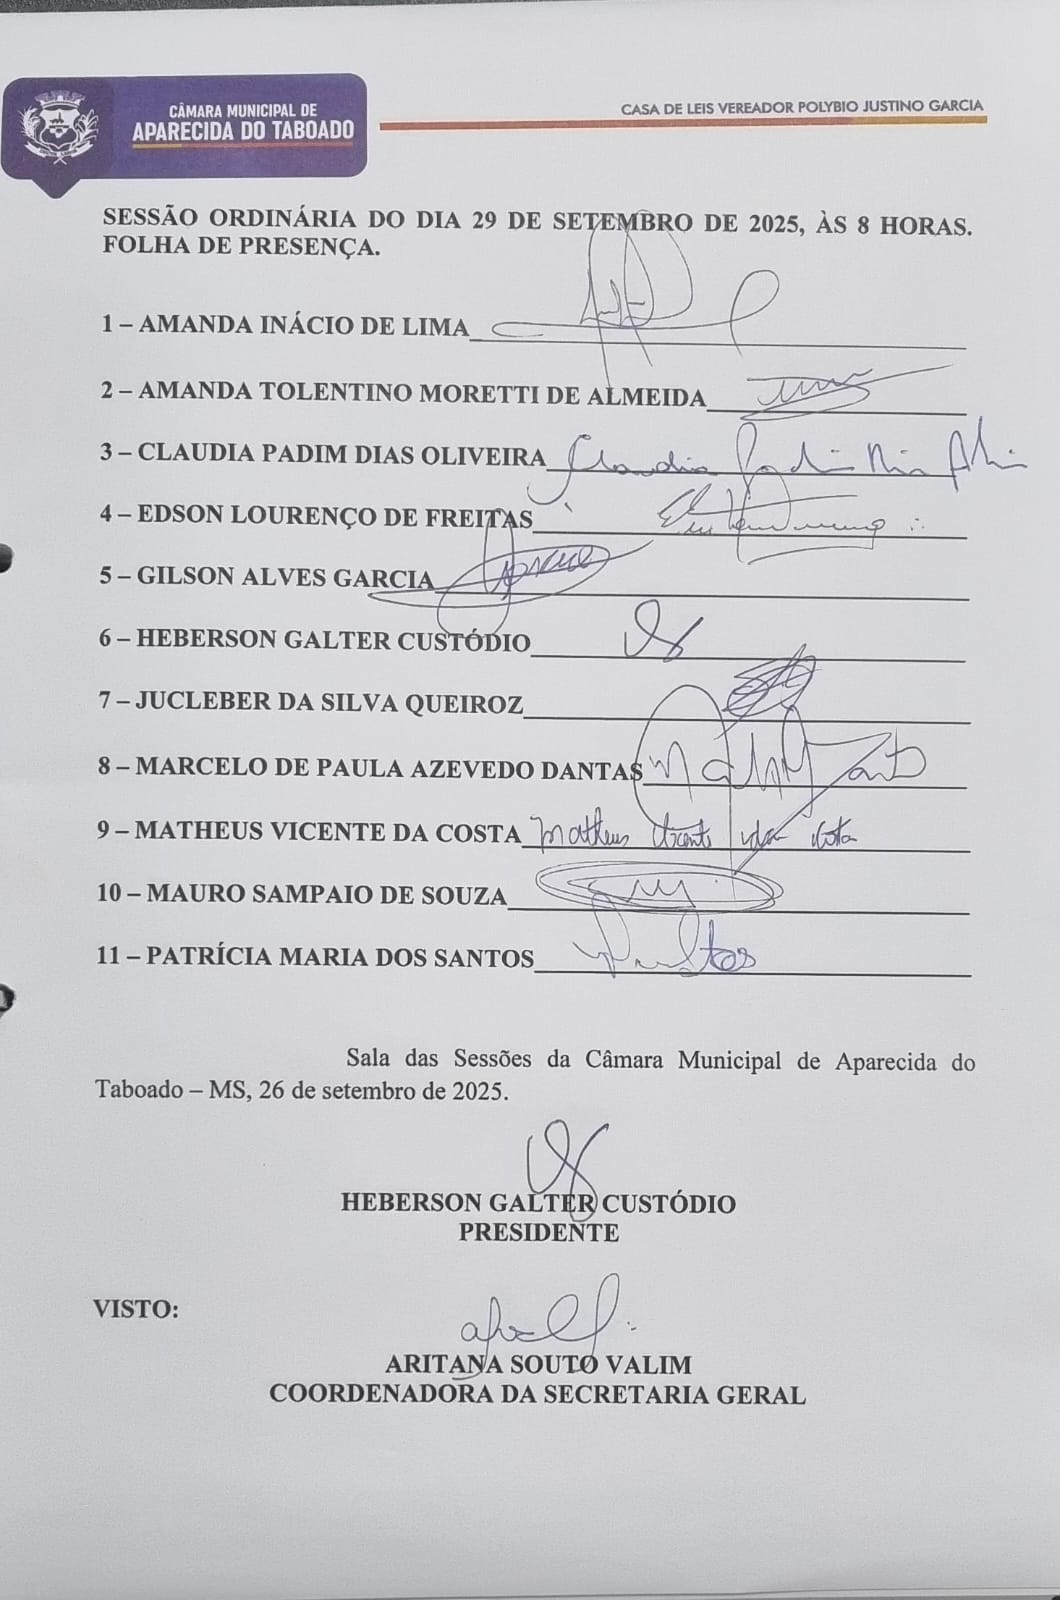 CÂMARA MUNICIPAL DE
APARECIDA DO TABOADO
CASA DE LEIS VEREADOR POLYBIO JUSTINO GARCIA
SESSÃO ORDINÁRIA DO DIA 29 DE SETEMBRO DE 2025, ÀS 8 HORAS.
FOLHA DE PRESENÇA.
1 – AMANDA INÁCIO DE LIMA
2 – AMANDA TOLENTINO MORETTI DE ALMEIDA
3 – CLAUDIA PADIM DIAS OLIVEIRA Claudia Padim Dias
4 – EDSON LOURENÇO DE FREITAS
5 – GILSON ALVES GARCIA
6 – HEBERSON GALTER CUSTÓDIO
7 – JUCLEBER DA SILVA QUEIROZ
8 – MARCELO DE PAULA AZEVEDO DANTAS
9 – MATHEUS VICENTE DA COSTA Matheus Vicente da Costa
10 – MAURO SAMPAIO DE SOUZA
11 – PATRÍCIA MARIA DOS SANTOS
Sala das Sessões da Câmara Municipal de Aparecida do
Taboado – MS, 26 de setembro de 2025.
HEBERSON GALTER CUSTÓDIO
PRESIDENTE
VISTO:
ARITANA SOUTO VALIM
COORDENADORA DA SECRETARIA GERAL